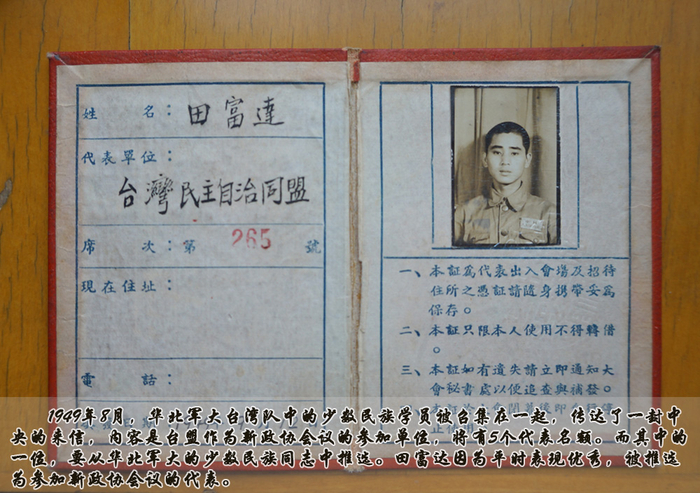 姓 名：田富達
代表單位：
台灣民主自治同盟
席 次：第 265 號
現在住址：
電 話：
一、本証為代表出入會場及招待
住所之憑証請隨身携帶妥為
保存。
二、本証只限本人使用不得轉借
。
三、本証如有遺失請立即通知大
會秘書處以便追查與補發。
1949年8月，华北军大台湾队中的少数民族学员被召集在一起，传达了一封中
央的来信，内容是台盟作为新政协会议的参加单位，将有5个代表名额。而其中的
一位，要从华北军大的少数民族同志中推选。田富达因为平时表现优秀，被推选
为参加新政协会议的代表。